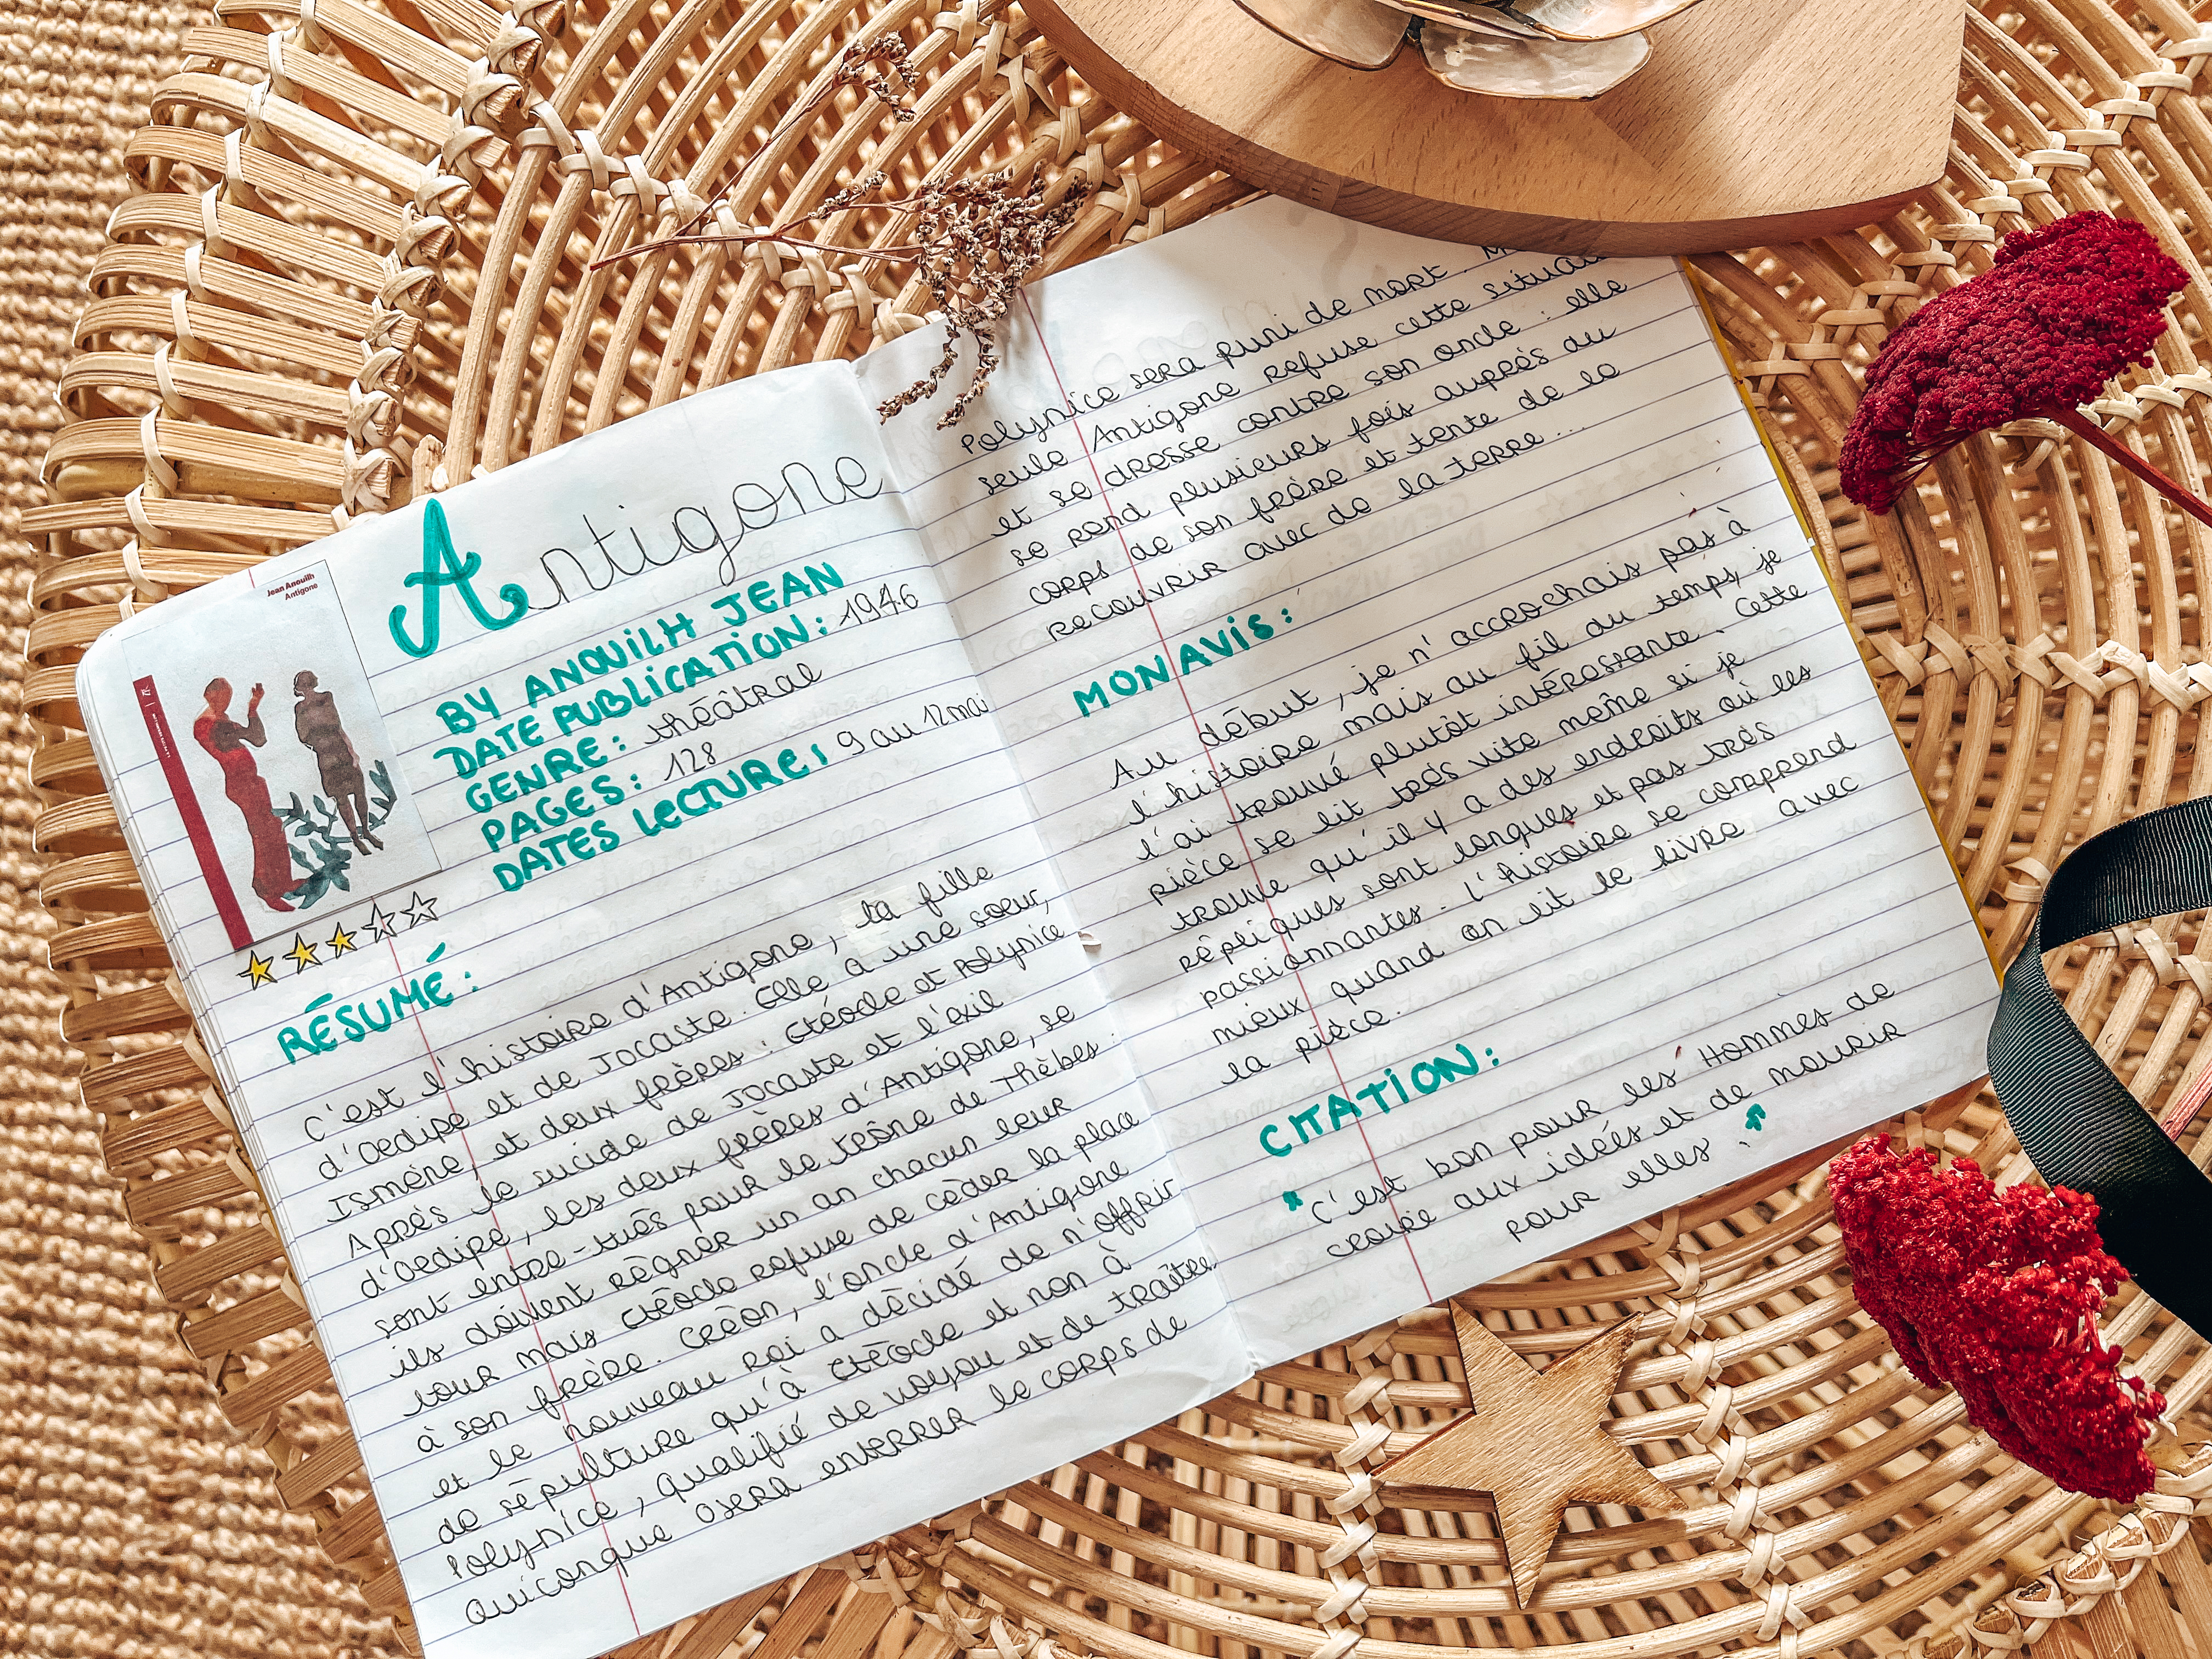 Jean Anouilh
Antigone
Antigone
BY ANOUILH JEAN
DATE PUBLICATION: 1946
GENRE: théâtral
PAGES: 128
DATES LECTURE: 9 au 12 mai
RÉSUMÉ:
C'est l'histoire d'Antigone, la fille
d'Oedipe et de Jocaste. Elle à une soeur,
Ismène, et deux frères : Etéocle et Polynice
Après le suicide de Jocaste et l'exil
d'Oedipe, les deux frères d'Antigone, se
sont entre-tués pour le trône de Thèbes :
ils doivent régner un an chacun leur
tour mais Etéocle refuse de cèder la place
à son frère. Créon, l'oncle d'Antigone
et le nouveau roi a décidé de n'offrir
de sépulture qu'à Etéocle et non à
Polynice, qualifié de voyou et de traître.
Quiconque osera enterrer le corps de
Polynice sera puni de mort.
seule Antigone refuse cette
et se dresse contre son oncle : elle
se rend plusieurs fois auprès du
corps de son frère et tente de le
recouvrir avec de la terre...
MON AVIS:
Au début, je n'accrochais pas à
l'histoire mais au fil du temps, je
l'ai trouvé plutôt intéressante. Cette
pièce se lit très vite même si je
trouve qu'il y a des endroits où les
répliques sont longues et pas très
passionnantes. L'histoire se comprend
mieux quand on lit le livre avec
la pièce.
CITATION:
"C'est bon pour les Hommes de
croire aux idées et de mourir
pour elles."